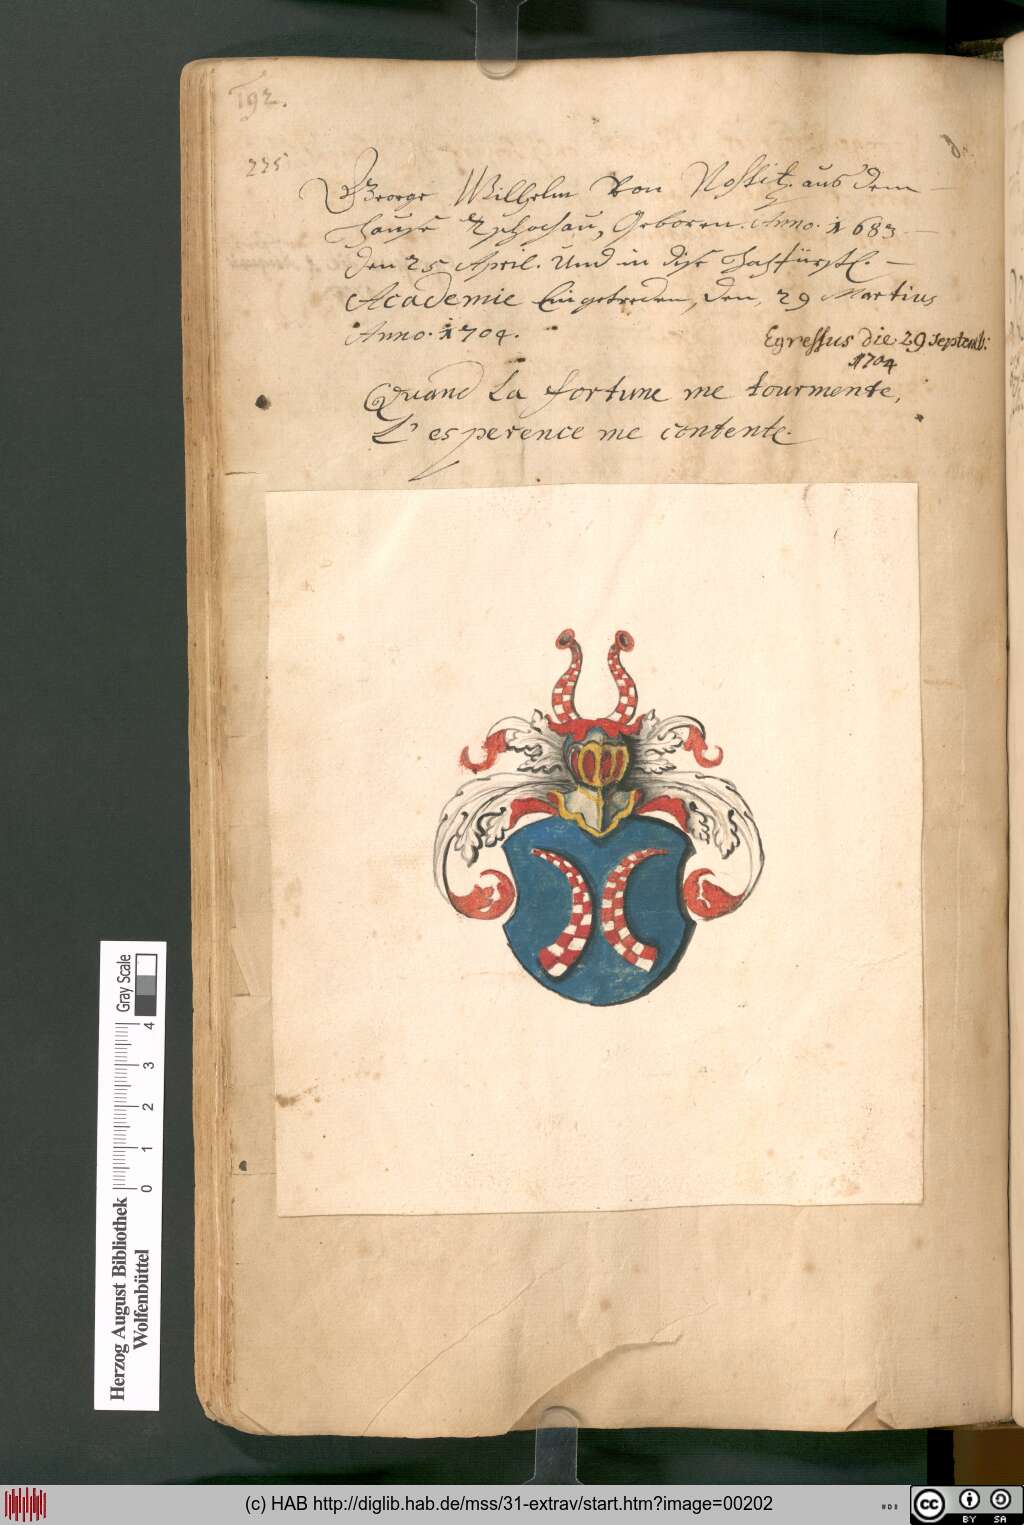 192.
225
George Wilhelm Von Nostitz. aus dem
Hause Zschochau, Geboren. Anno. 1683
den 25 April. Und in dise Hochfürstl.
Academie Eingetreden, den, 29 Martius
Anno. 1704.
Egressus die 29 septemb:
1704
Quand La fortune me tourmente,
L'esperence me contente.
Herzog August Bibliothek
Wolfenbüttel
0 1 2 3 4
Gray Scale
(c) HAB http://diglib.hab.de/mss/31-extrav/start.htm?image=00202
cc
BY SA